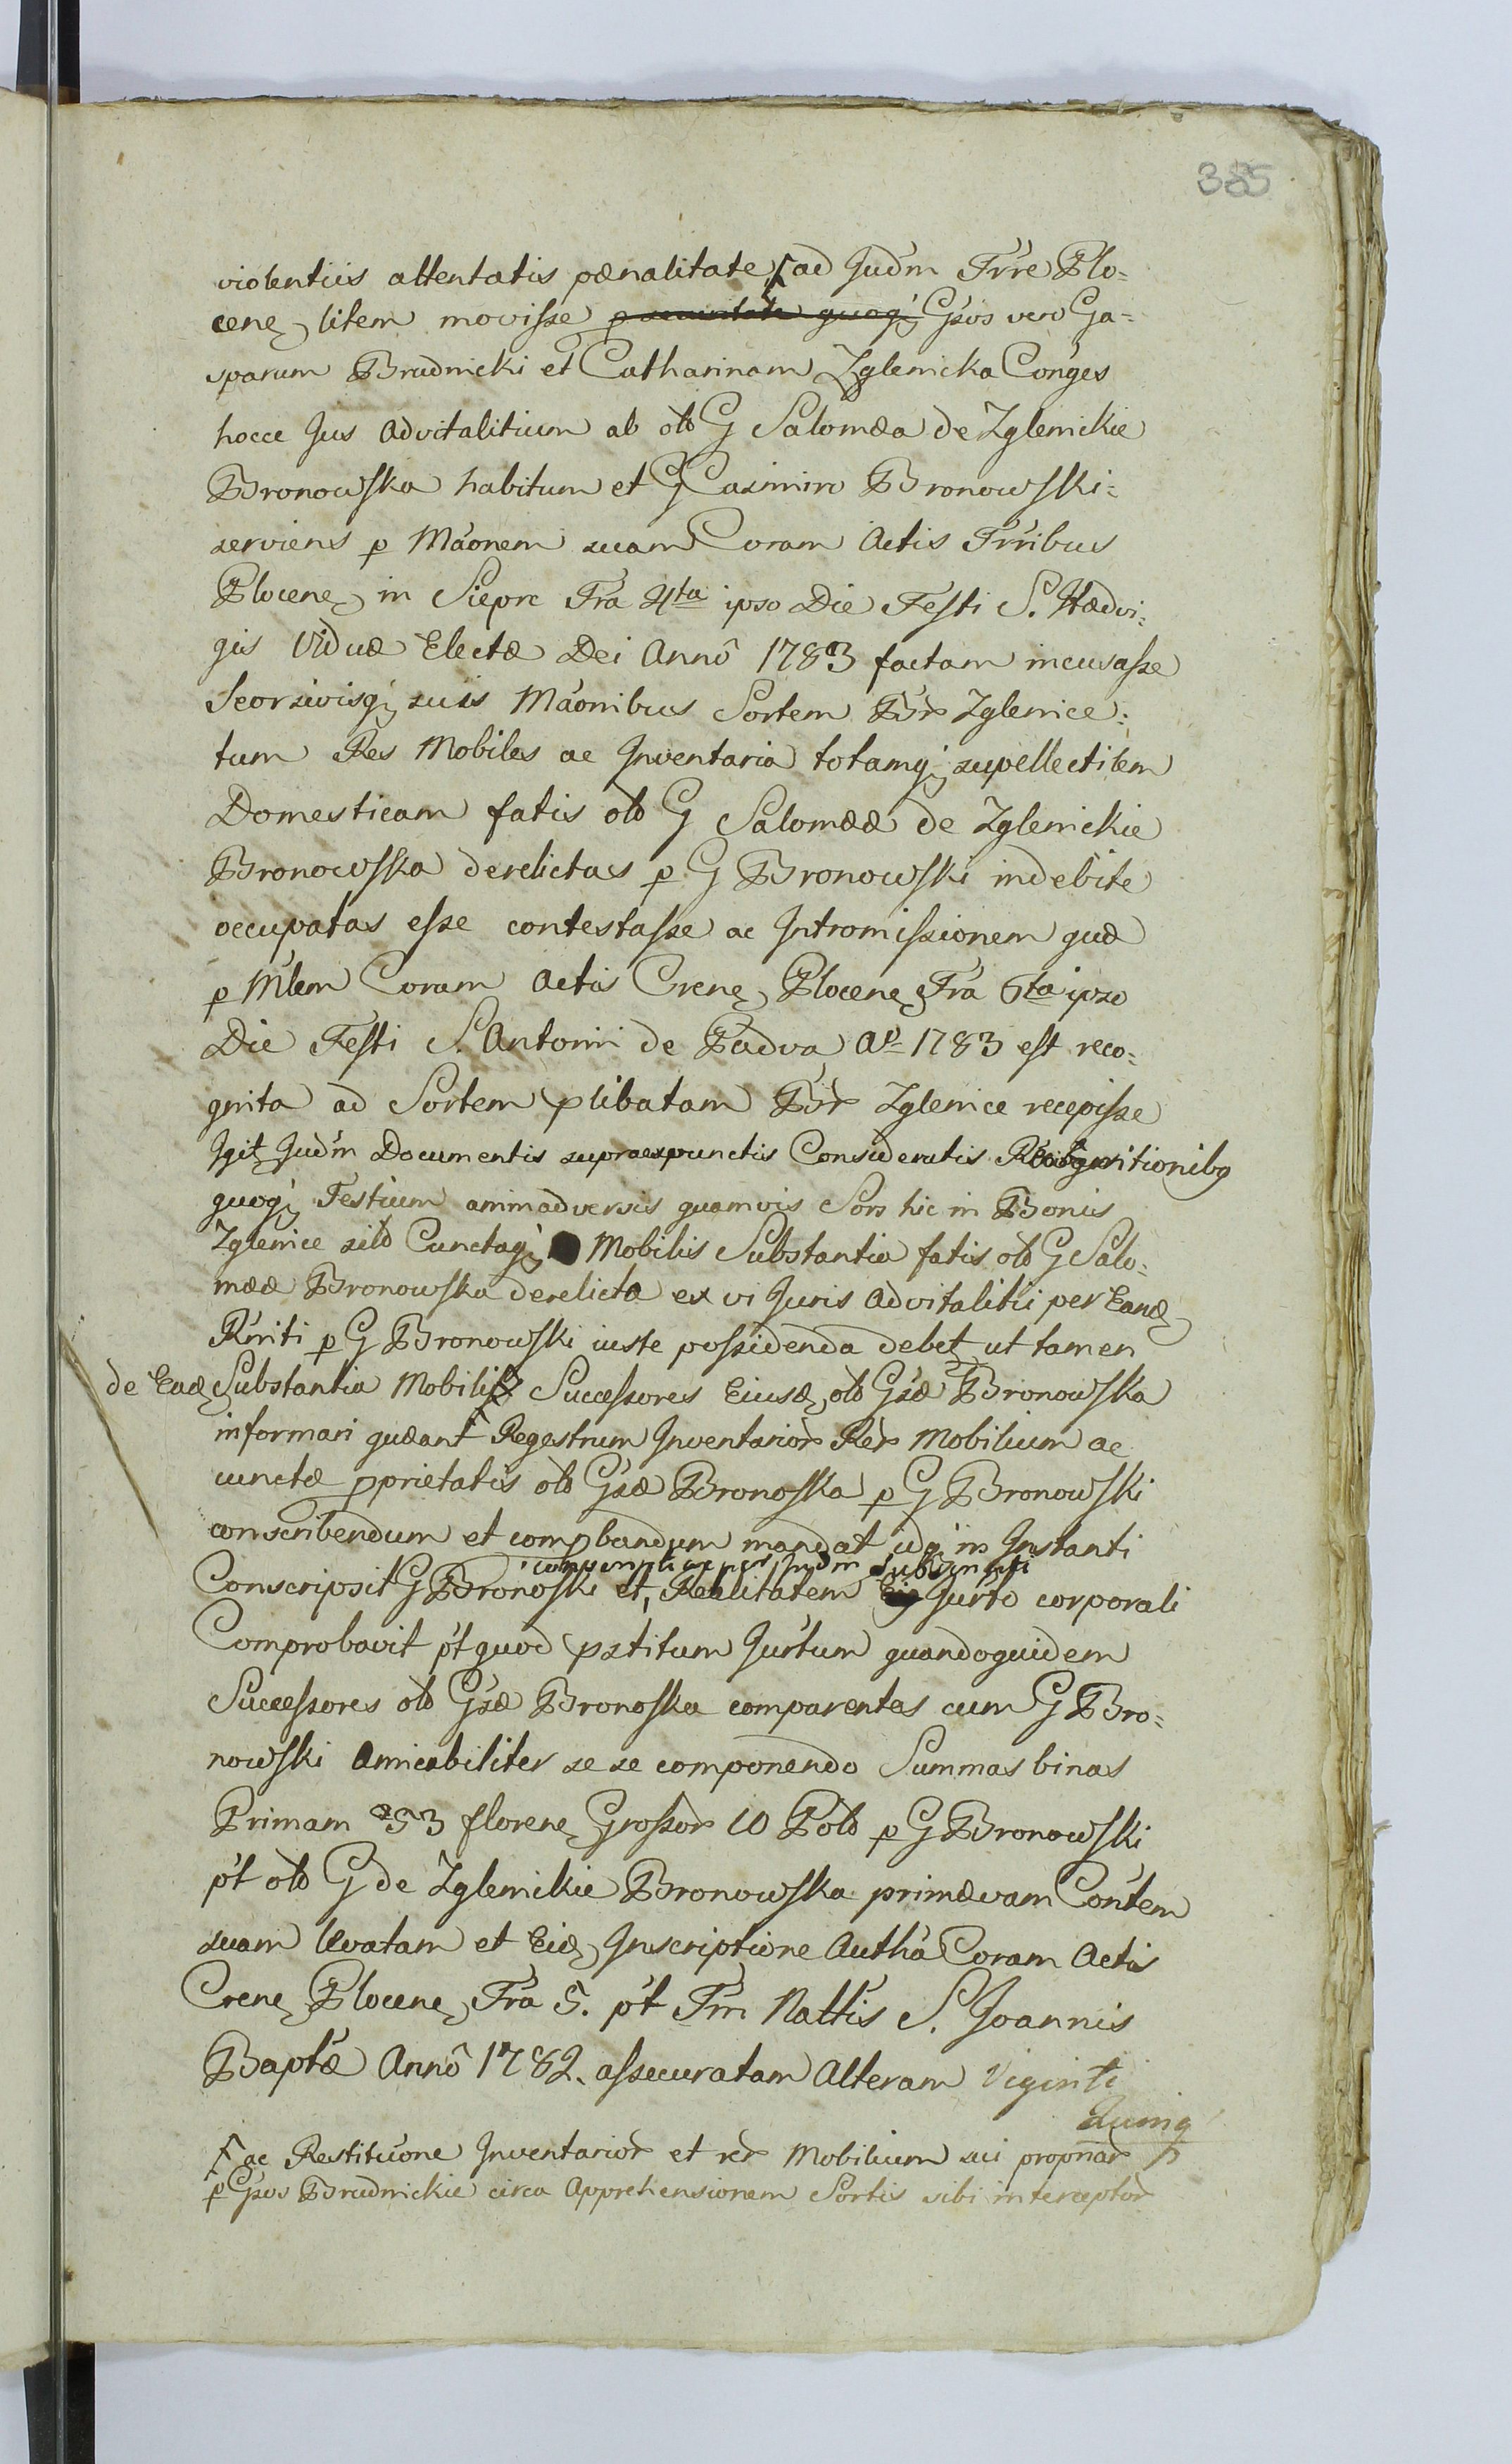 385
violentiis attentatis pænalitate, ⌈ ad Judm Trre Plo=
cene, litem movisse quoq; Gsos vero Ga=
sparum Brudnicki et Catharinam Zglenicka Conges
hocce Jus Advitalitium ab olo G Salomæa de Zglenickie
Bronowska habitum et G Casimiro Bronowski=
serviens p Máonem suam Coram Actis Trribus
Plocene, in Sieprc Fra 4ta ipso Die Festi S. Hædvi=
gis Viduæ Electæ Dei Annô 1783 factam incusasse
Seorsivisq; suis Máonibus Sortem Bór Zglenice:
tum Res Mobiles ac Inventaria totamq; supellectilem
Domesticam fatis olo G Salomææ de Zglenickie
Bronowska derelictas p G Bronowski indebite
occupatas esse contestasse ac Intromissionem quæ
p Mlem Coram Actis Crene, Plocene, Fra 6ta ipso
Die Festi S. Antonii de Padva Ao 1783 est reco=
gnita ad Sortem plibatam Bór Zglenice recepisse
Igit Judm Documentis supraexpunctis Consideratis Recognitionibq
quoq; Testium animadversis quamvis Sors hic in Bonis
Zglenice silo Cunctaq; Mobilis Substantia fatis olo G Salo=
mææ Bronowska derelicta ex vi Juris Advitalitii per Eand,
Rúriti p G Bronowski iuste possidenda debet, ut tamen
de Ead, Substantia Mobili Successores Eiusd, olo Gsæ Bronowska
informari quæant Regestrum Inventarior Rer Mobilium ac
cunctæ pprietatis olo Gsæ Bronoska p G Bronowski
conscribendum et compbandum mandat idq; in Instanti
conscripti ac per Judm Subscripti
Conscripsit G Bronoski et, Realitatem Jurto corporali
Comprobavit pt quod pstitum Jurtum quandoquidem
Successores olo Gsæ Bronoska comparentes cum G Bro=
nowski Amicabiliter se se componendo Summas binas
Primam 253 florene, Grossor 10 Pólo p G Bronowski
pt olo G de Zglenickie Bronowska primævam Cóntem
suam levatam et Eid, Inscriptione Authã Coram Actis
Crene, Plocene, Fra 5. pt Fm Nattis S. Joannis
Baptæ Annô 1782. assecuratam Alteram Viginti
Quinq
⌈ ac Restitúone Inventarior et rer Mobilium sui propriar
p Gsos Brudnickie circa Apprehensionem Sortis sibi interceptor